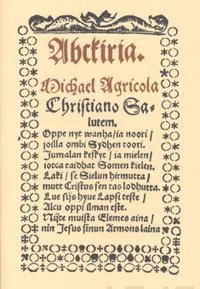 Abckiria.
Michael Agricola
Christiano Sa-
lutem.
Oppe nyt wanha / ia noori /
joilla ombi Sydhen toori.
Jumalan keskyt / ia mielen /
iotca taidhat Somen kielen.
Laki / se Sielun hirmutta /
mutt Cristus sen tas lodhutta.
Lue sijs hyue Lapsi teste /
Alcu oppi ilman este.
Nijte muista Elemes aina /
nin Jesus sinun Armons laina